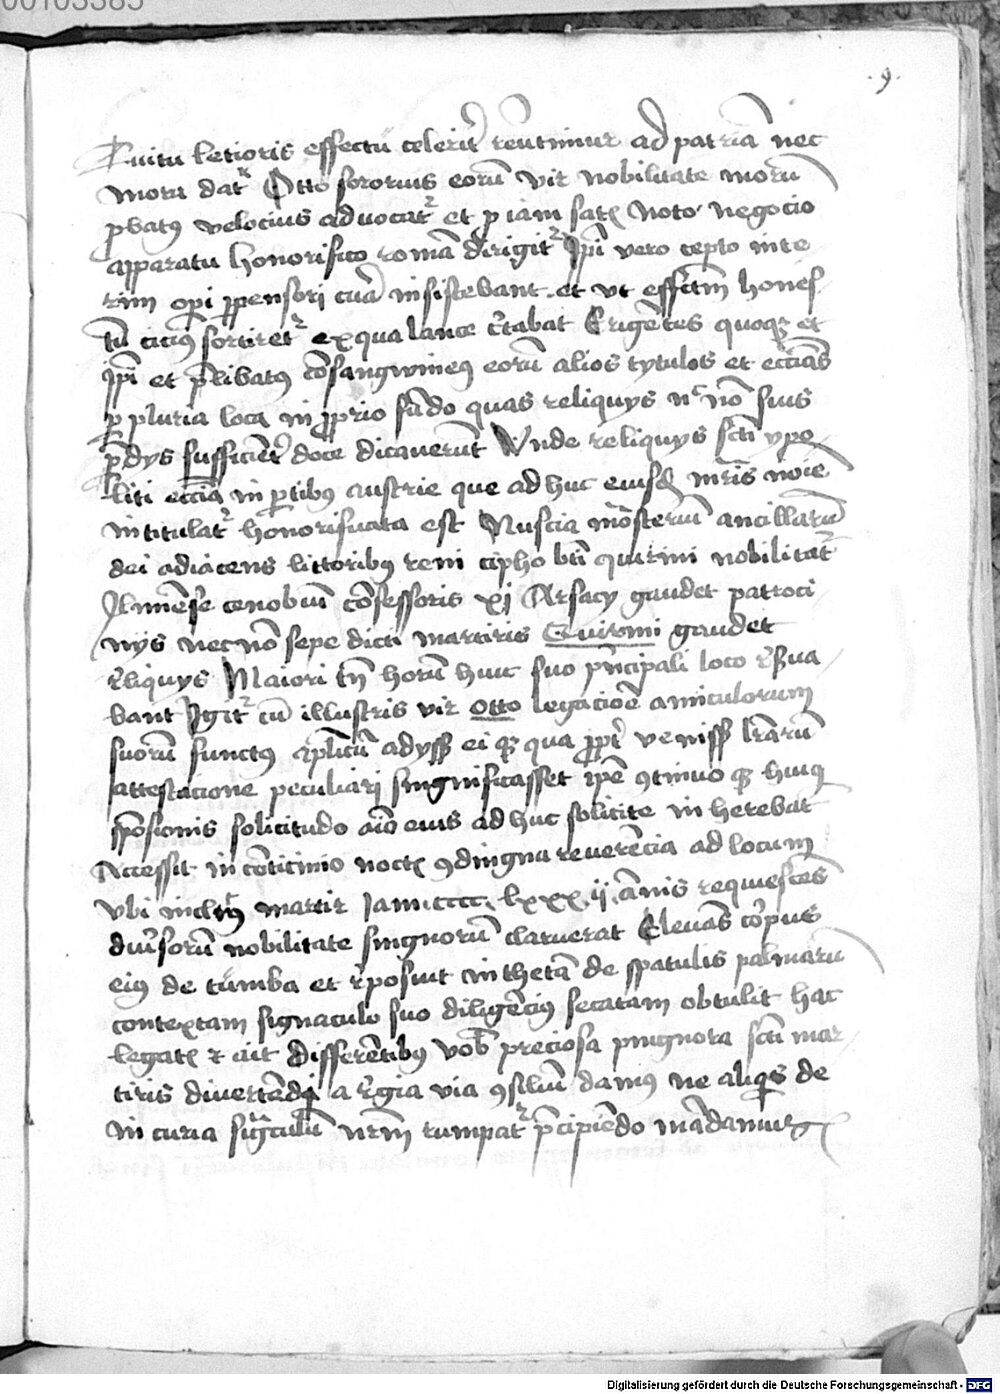 00103385
.9.
Euitu letioris effectu celerit revertimur ad patriam nec
mora dat Otto sororius eorum vir nobilitate moru
pbatus velocius advocat et p iam satis noto negocio
apparatu honorifico romam dirigit Ipi vero cepto inte
rim operi ppensori cura insistebant et ut effectum hones
tu cicius sortiret ex equa lance Erigentes quoque et
Ipi et plibatus consangwineus eorum alios tytulos et ecclias
p pluria loca in pprio fundo quas reliquys non suis
pdys sufficient dicaverunt Unde reliquys scti ypo
liti ecclia in ptibus austrie que ad huc eiusd mris noie
intitulat honorificata est Nuscia monsterium ancillarum
dei adiacens littoribus reni cipho bti quirini nobilitat
Ilmense cenobium confessoris xpi Arsacy gaudet patroci
nys necno sepe dicti martiris Quirini gaudet
reliquys Maiori tn horum huic suo principali loco reserva
bant Igit cu illustris vir Otto legacione amiculorum
suorum functus ei qua venisse lrarum
attestacione peculiari singnificasset ipe continuo huius
sponsionis solicitudo aio eius ad huc solicite in herebat
Accessit in conticinio noctis condingna reverencia ad locum
ubi inclitus martir Jam cccc lxxx ij annis requiescens
diversorum nobilitate singnorum claruerat Elevans corpus
eius de tumba et reposuit in theca de spatulis palmaru
contextam signaculo suo diligencius secatam obtulit hac
legatis et ait differentibus vob preciosa pingnora scti mar
tiris divertendi a regia via consilium damus ne aliquis de
in curia singnaculum nrm rumpat precipiendo mandamus
Digitalisierung gefördert durch die Deutsche Forschungsgemeinschaft - DFG